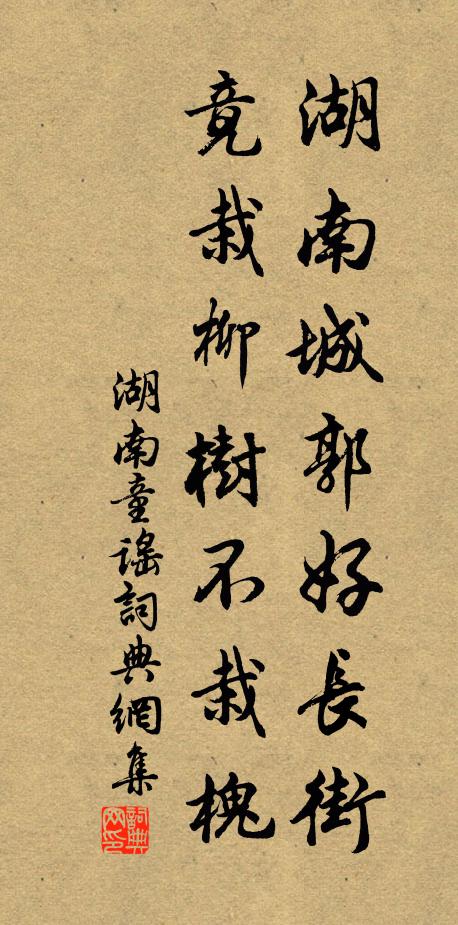 湖南城郭好長街
竟栽柳樹不栽槐
湖南童謠詞典網集
詞典網印